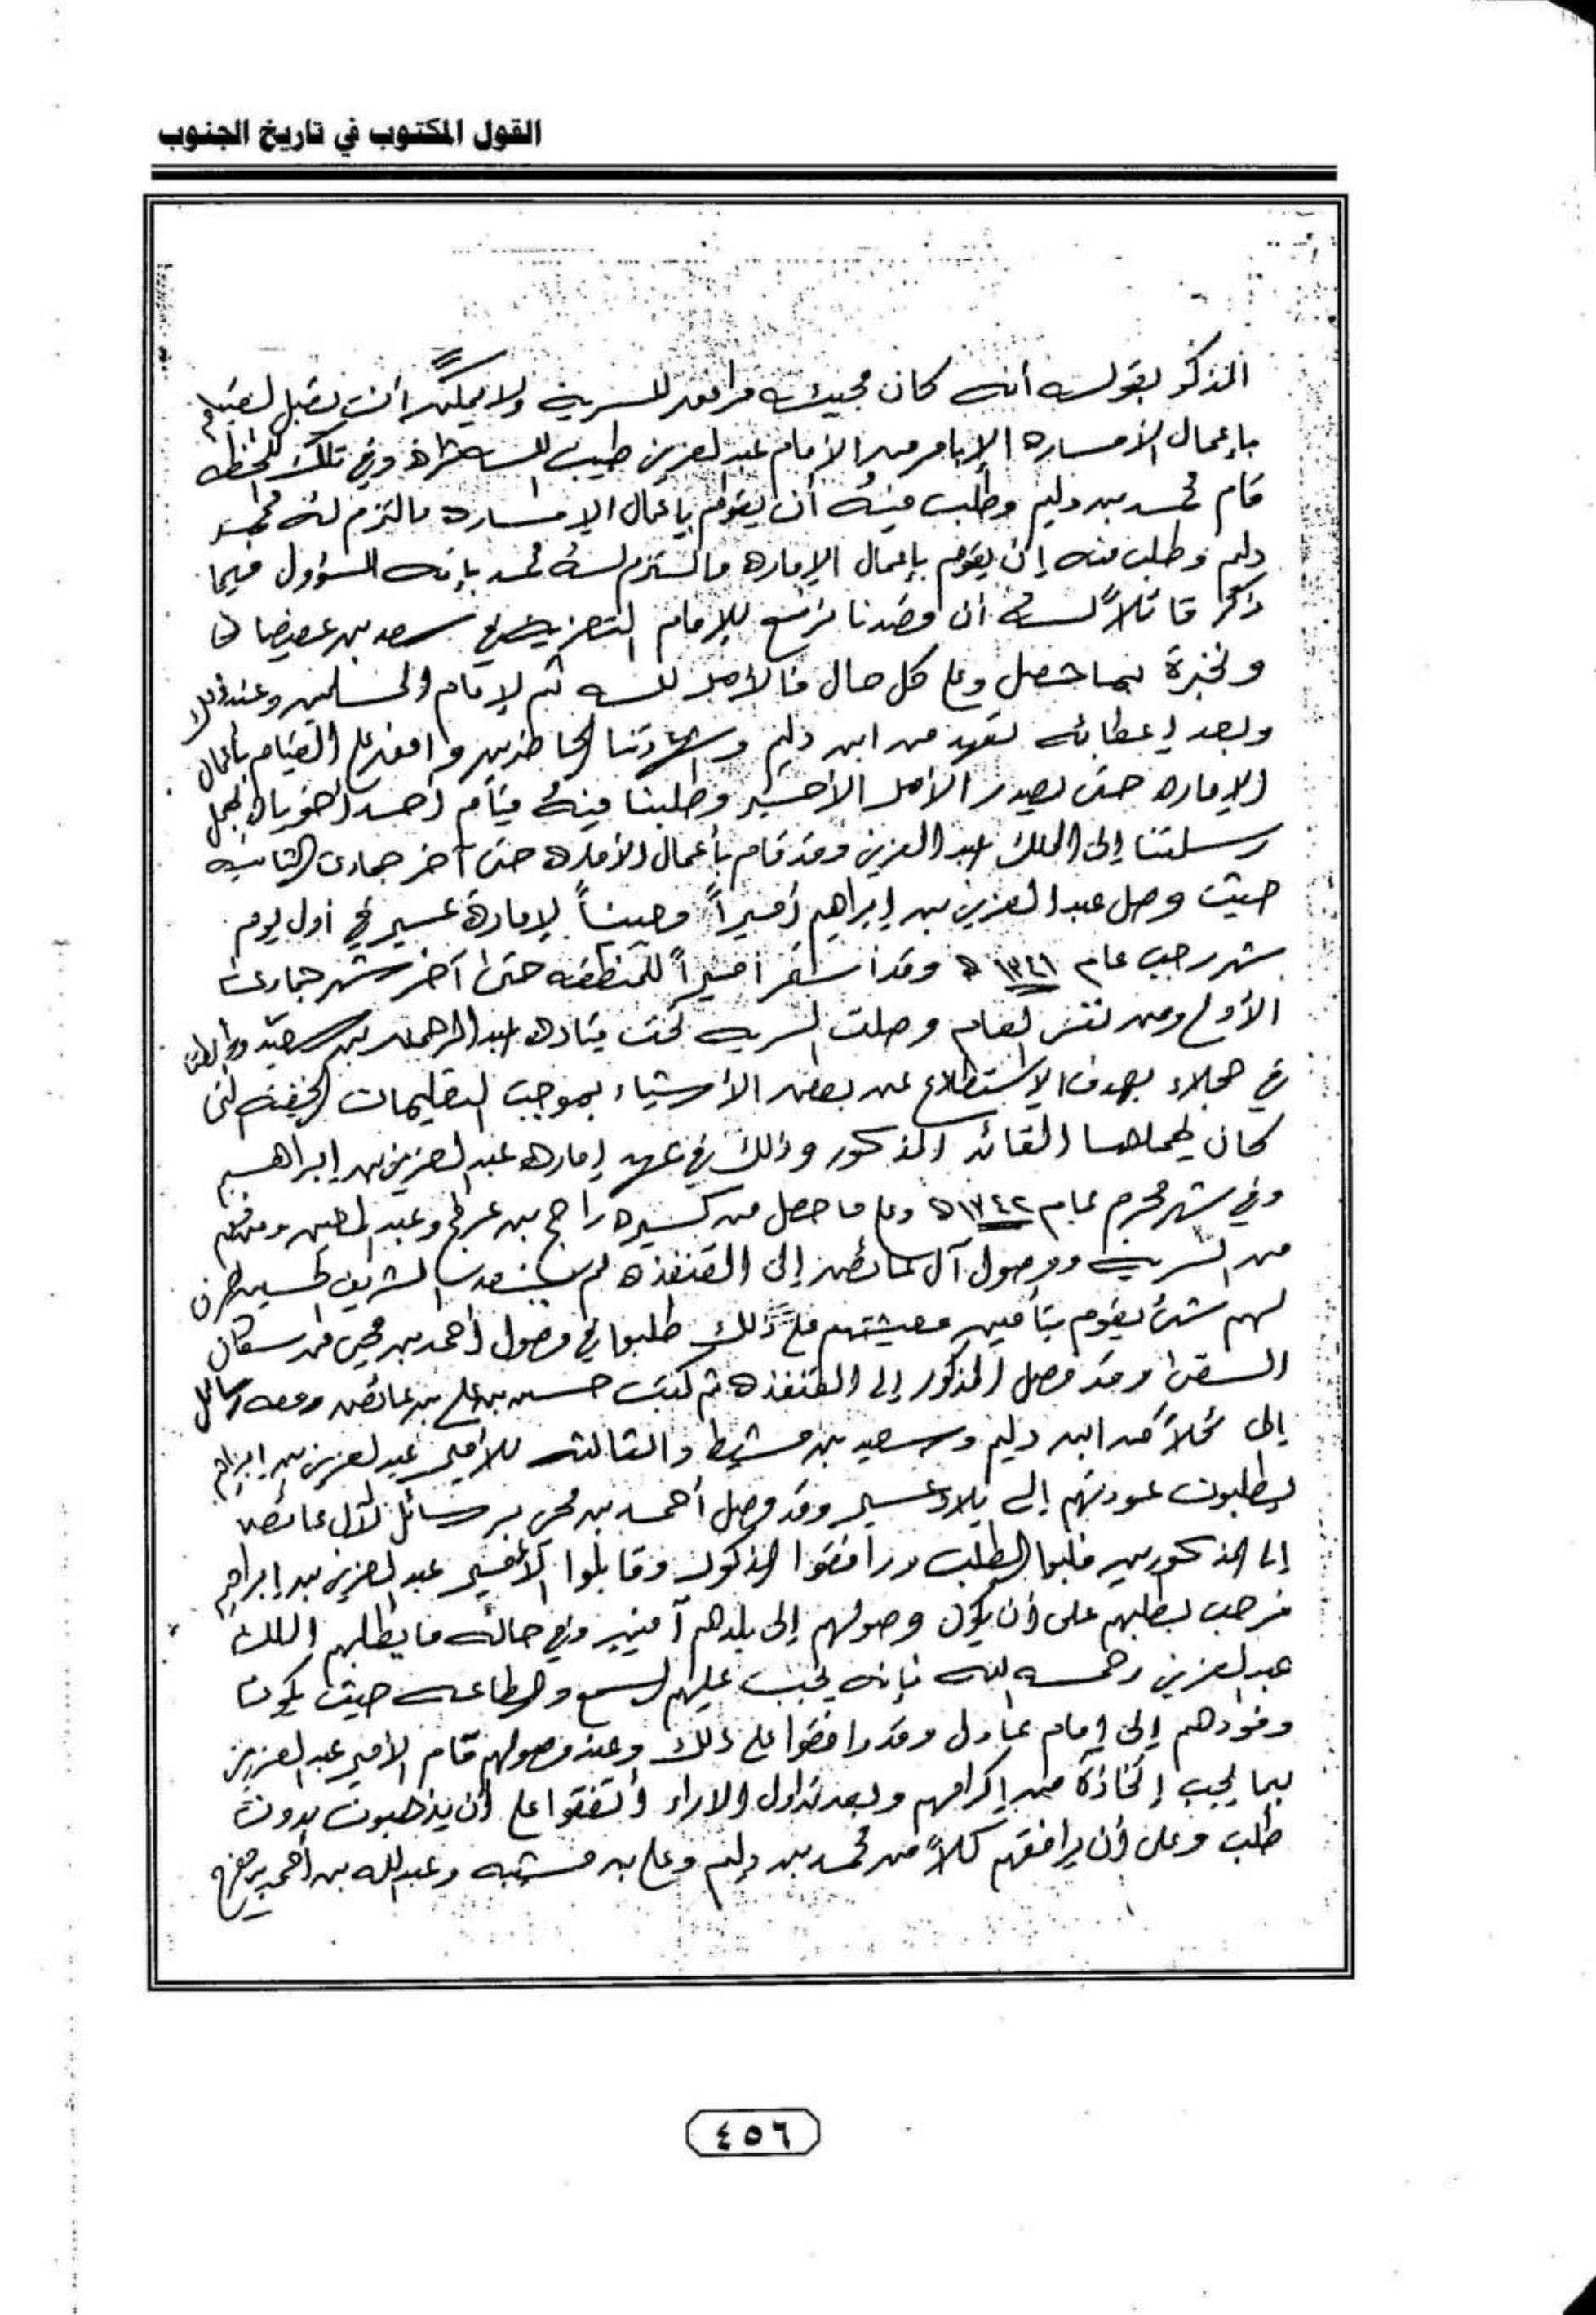 القول المكتوب في تاريخ الجنوب
المذكر بقوله أنه كان مجيئه مرافق للسرية ولا يمكن أنت يقبل القيام
بإعمال الأمساره الإبامر من الإمام عبدالعزيز طيب الله ثراه وفي تلك اللحظه
قام محمد بن دليم وطلب منه أن يقوم بأعمال الإمساره مالتزم له محمد
دليم وطلب منه إن يقوم بإعمال الإماره مالتزم له محمد بإنه المسؤول فيما
ذكر قائلاً له أن قصدنا نرفع للإمام التعزيه في سعد بن عفيصان
ونخبرة بما حصل وعلى كل حال فالأمر لله ثم لإمام المسلمين وعند ذلك
وبعد إعطائه تعهد من ابن دليم وشهادتنا الحاضرين وافق على القيام بأعمال
الإماره حتى يصدر الأمر الأخير وطلبنا منه قيام أحد الخويان بحمل
رسلتنا إلى الملك عبدالعزيز وقد قام بأعمال الأماره حتى آخر جمادى الثانيه
حيث وصل عبدالعزيز بن إبراهيم أميراً معيناً لإمارة عسير في أول يوم
شهر رجب عام ١٣٤١ه وقد أستقر اميراً للمنطقه حتى آخر شهر جمادى
الأولى ومن نفس العام وصلت السريه تحت قياده عبدالرحمن بن سعيد
في حجلاء بهدف الإستطلاع عن بعض الأشياء بموجب التعليمات الخفيه التى
كان يحملها القائد المذكور وذلك في عهد إماره عبدالعزيز بن إبراهيم
وفي شهر محرم عام ١٣٤٢ه وعلى ما حصل من كسيره راجح بن عرفج وعبدالمعين ومن معهم
من السريه ووصول آل عائض إلى القنفذه لم الشريف الحسين صرف
لهم شئ يقوم بتأمين معيشتهم على ذلك طلبوا في وصول أحمد بن محي من سكان
السقى وقد وصل المذكور إلى القنفذه ثم كتب حسن بن علي بن عائض ومعه رسائل
إلى كلاً من ابن دليم وسعيد بن مشيط والثالثه للأمير عبدالعزيز بن ابراهيم
يطلبون عودتهم إلى بلاد عسير وقد وصل أحمد بن محي برسائل لآل عائض
إلى المذكورين فلبوا الطلب ورافقوا المذكور وقابلوا الأمير عبدالعزيز بن إبراهيم
فرحب بطلبهم على أن يكون وصولهم إلى بلدهم آمنين وفي حاله ما يطلبهم الملك
عبدالعزيز رحمه الله فإنه يجب عليهم السمع والطاعه حيث يكون
وفودهم إلى إمام عادل وقد وافقوا على ذلك وعند وصولهم قام الأمير عبدالعزيز
بما يجب إتخاذه من إكرامهم وبعد تداول الاراء أتفقوا على أن يذهبون بدون
طلب وعلى أن يرافقهم كلاً من محمد بن دليم وعلي بن مشبه وعبدالله بن أحمد بن مفرح
٤٥٦